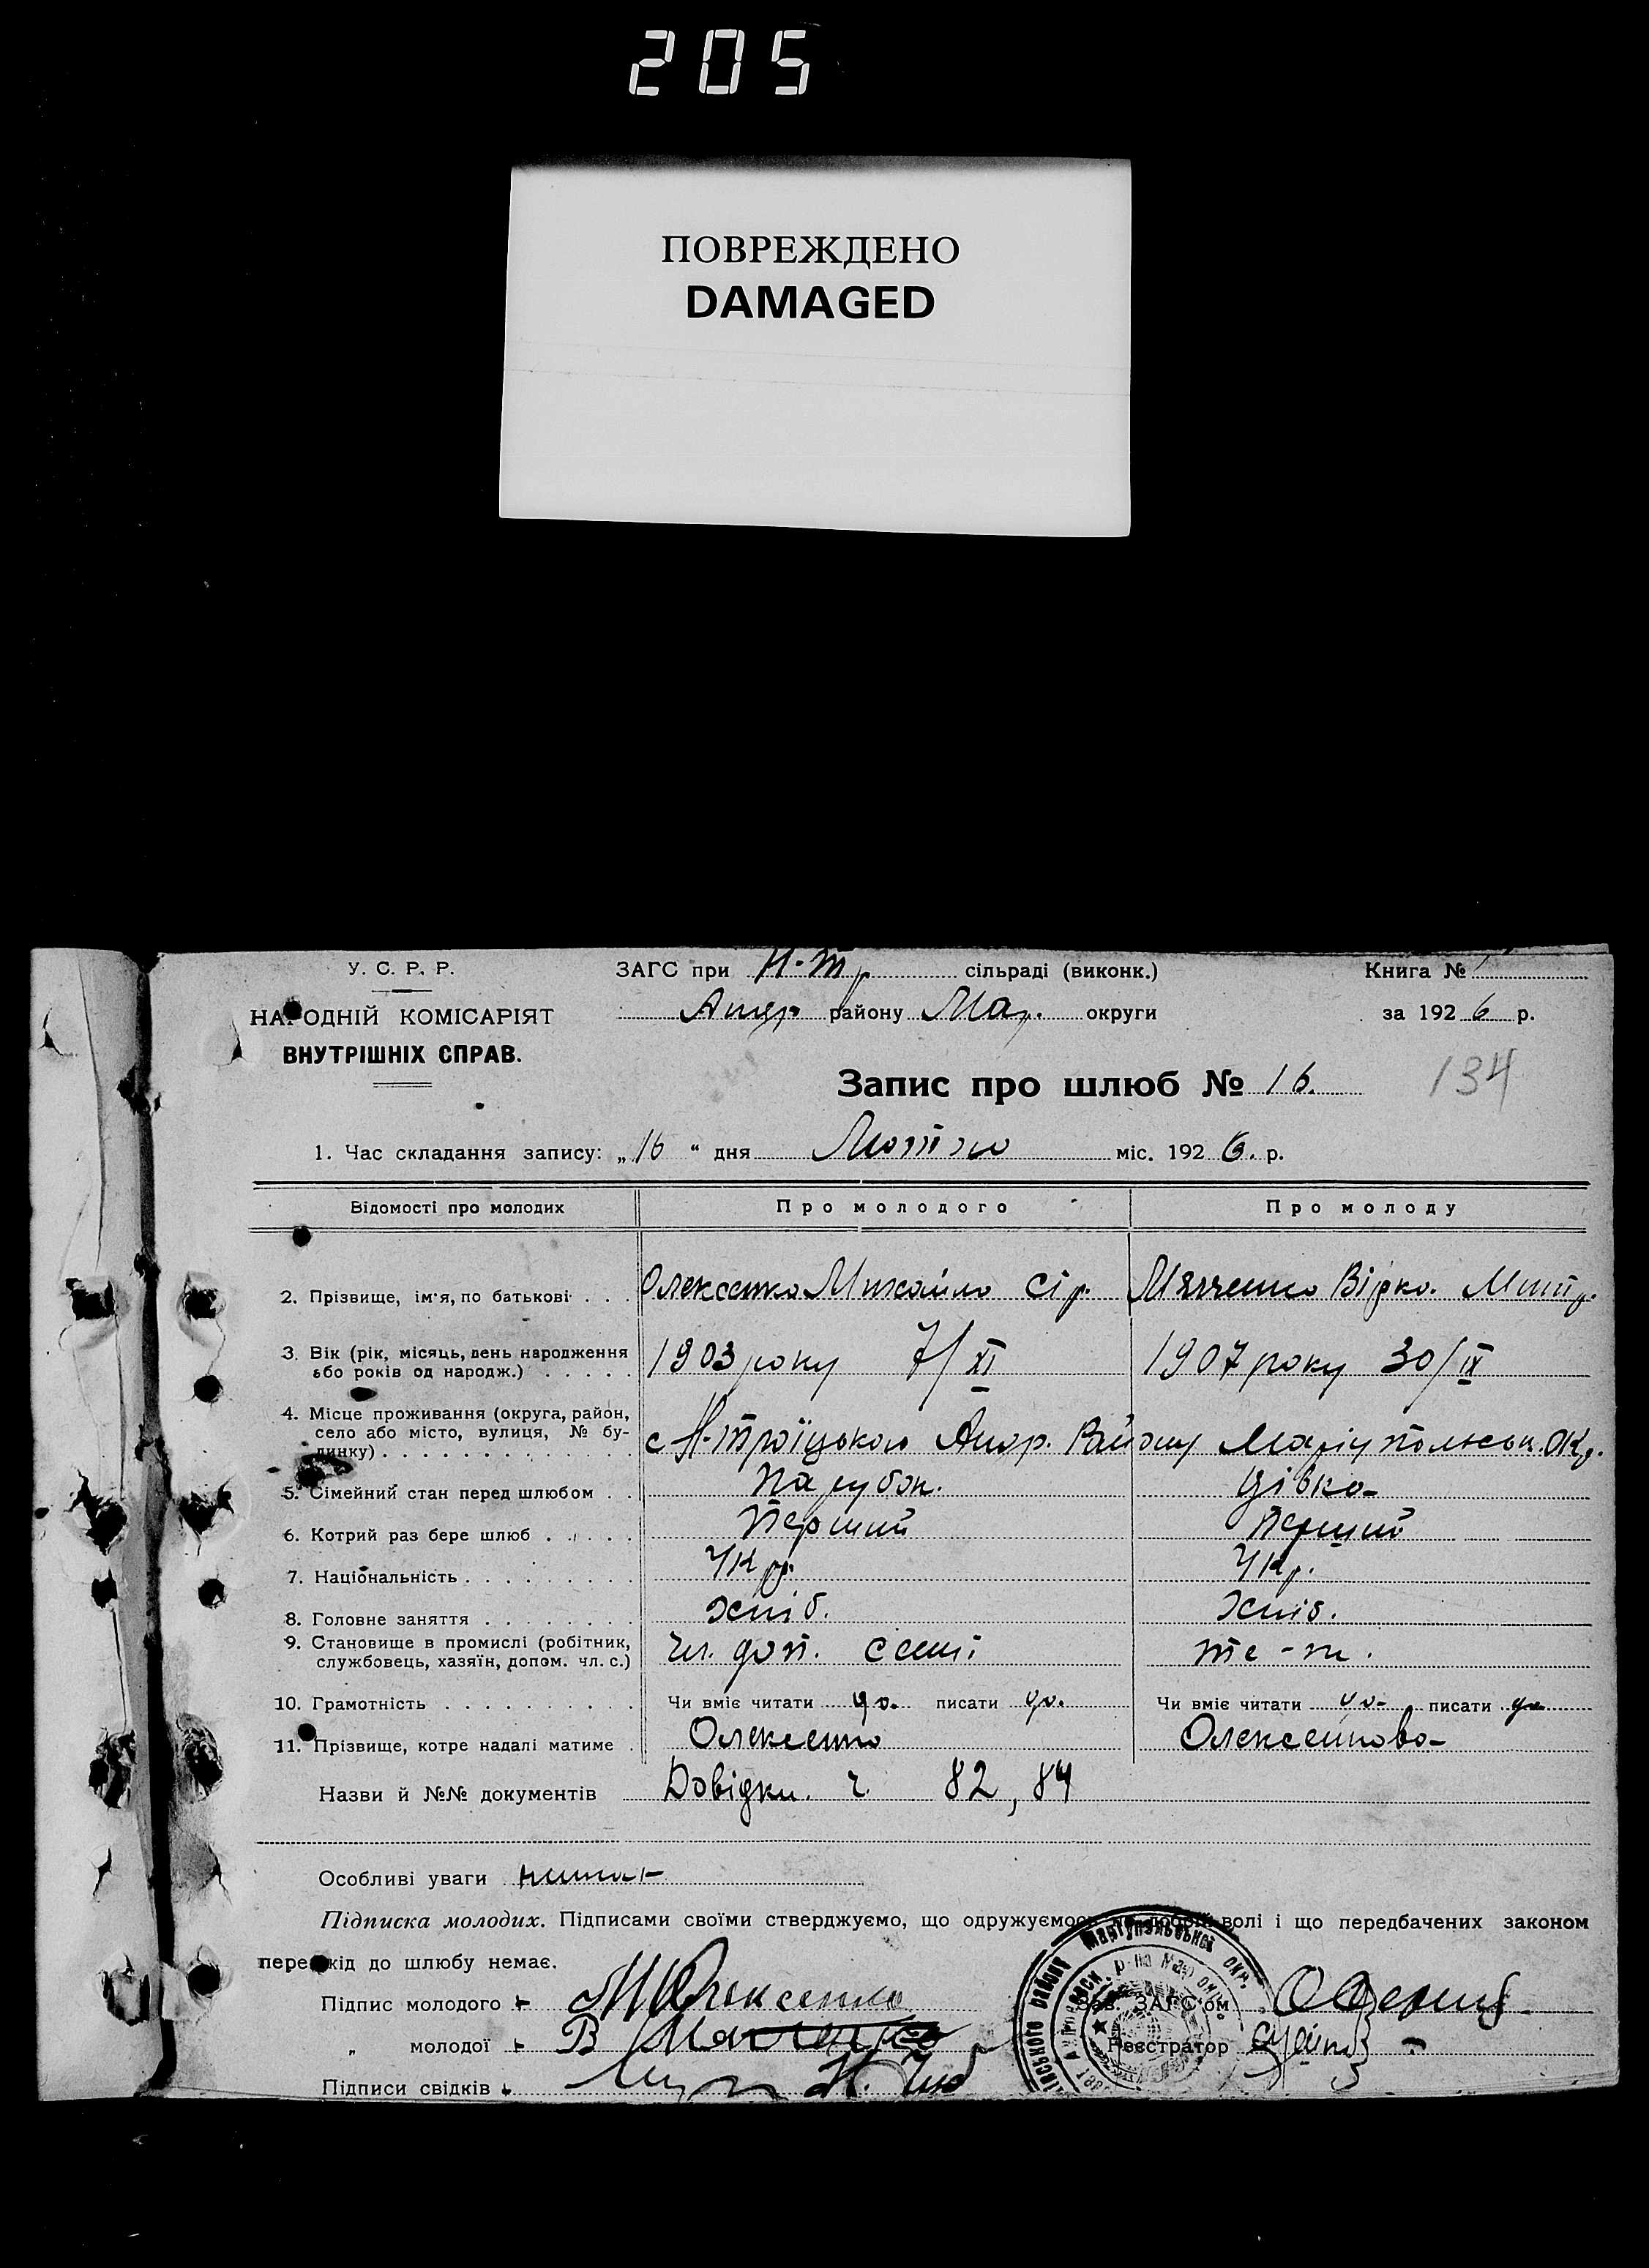 205
ПОВРЕЖДЕНО
DAMAGED
У. С. Р. Р.
ЗАГС при Н-Тр сільраді (виконк.)
Книга №
НАРОДНІЙ КОМІСАРІЯТ
Андр. району Мар. округи
за 1926 р.
ВНУТРІШНІХ СПРАВ.
Запис про шлюб № 16.
134
1. Час складання запису: „16" дня Лютого міс. 1926. р.
Відомості про молодих
Про молодого
Про молоду
2. Прізвище, ім'я, по батькові . . .
Олексенко Михайло Сір.
Вірка. Митр.
3. Вік (рік, місяць, день народження
або років од народж.) . . . . .
1903 року 7/XI
1907 року 30/IX
4. Місце проживання (округа, район,
село або місто, вулиця, № бу-
динку) . . . . . . . . . .
с Н-Троїцького Андр. Району Маріупольськ. Окр.
5. Сімейний стан перед шлюбом . .
Парубок.
Дівка
6. Котрий раз бере шлюб . . . .
Перший
Перший
7. Національність . . . . . . . . .
Укр.
Укр.
8. Головне заняття . . . . . . . .
Хліб.
Хліб.
9. Становище в промислі (робітник,
службовець, хазяїн, допом. чл. с.)
чл. доп. семї
те-ж.
10. Грамотність . . . . . . . . . .
Чи вміє читати да. писати да.
Чи вміє читати да писати да
11. Прізвище, котре надалі матиме .
Олексенко
Олексенкова
Назви й №№ документів Довідки. ч. 82, 84
Особливі уваги
Підписка молодих. Підписами своїми стверджуємо, що одружуємось по добрій волі і що передбачених законом
перешкід до шлюбу немає.
Підпис молодого М Олексенко
Зав. ЗАГС'ом
„ молодої В
Реєстратор
Підписи свідків
району Маріупольської окр.